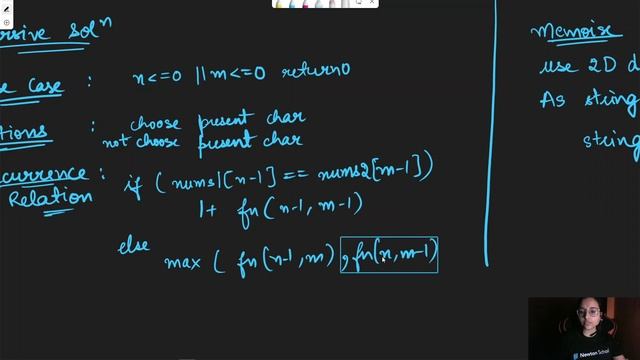 rsive Solⁿ
se Case : n<=0 || m<=0 return 0
tions : choose present char
not choose present char
currence : if ( nums1[n-1] == nums2[m-1])
Relation 1+ fn(n-1, m-1)
else
max ( fn(n-1, m) , fn(n, m-1)
Memoise
use 2D d
As string
string
Newton School